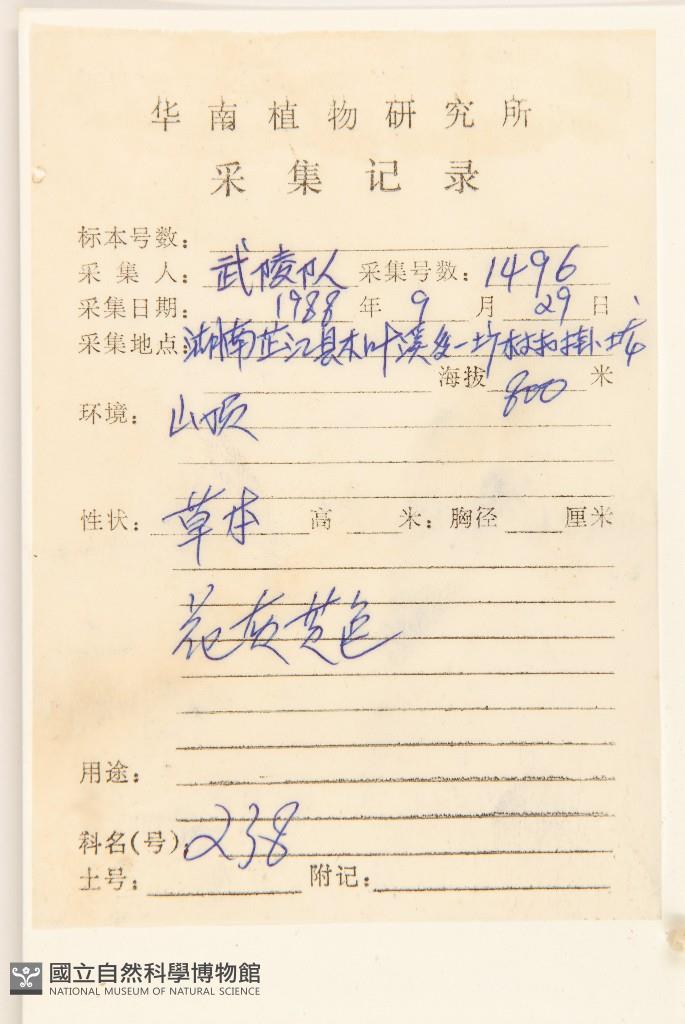 华南植物研究所
采集记录
标本号数:
采集人: 武陵队 采集号数: 1496
采集日期: 1988 年 9 月 29 日
采集地点: 湖南芷江县木叶溪 一 村 挂
海拔 800 米
环境: 山顶
性状: 草本 高 米; 胸径 厘米
花灰黄色
用途:
科名(号): 238
土号: 附记:
國立自然科學博物館
NATIONAL MUSEUM OF NATURAL SCIENCE